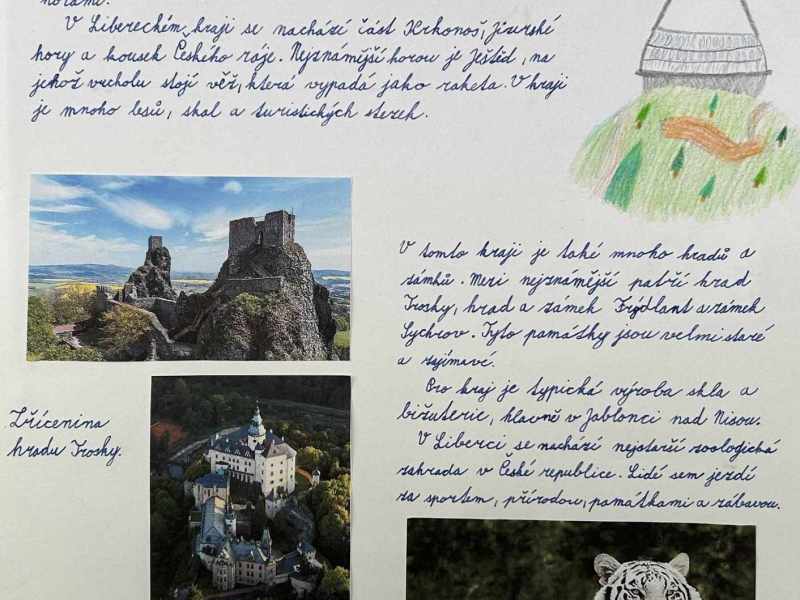 horami.
V Libereckém kraji se nachází část Krkonoš, Jizerské
hory a kousek Českého ráje. Nejznámější horou je Ještěd, na
jehož vrcholu stojí věž, která vypadá jako raketa. V kraji
je mnoho lesů, skal a turistických stezek.
V tomto kraji je také mnoho hradů a
zámků. Mezi nejznámější patří hrad
Trosky, hrad a zámek Frýdlant a zámek
Sychrov. Tyto památky jsou velmi staré
a zajímavé.
Pro kraj je typická výroba skla a
bižuterie, hlavně v Jablonci nad Nisou.
V Liberci se nachází nejstarší zoologická
zahrada v České republice. Lidé sem jezdí
za sportem, přírodou, památkami a zábavou.
Zřícenina
hradu Trosky.